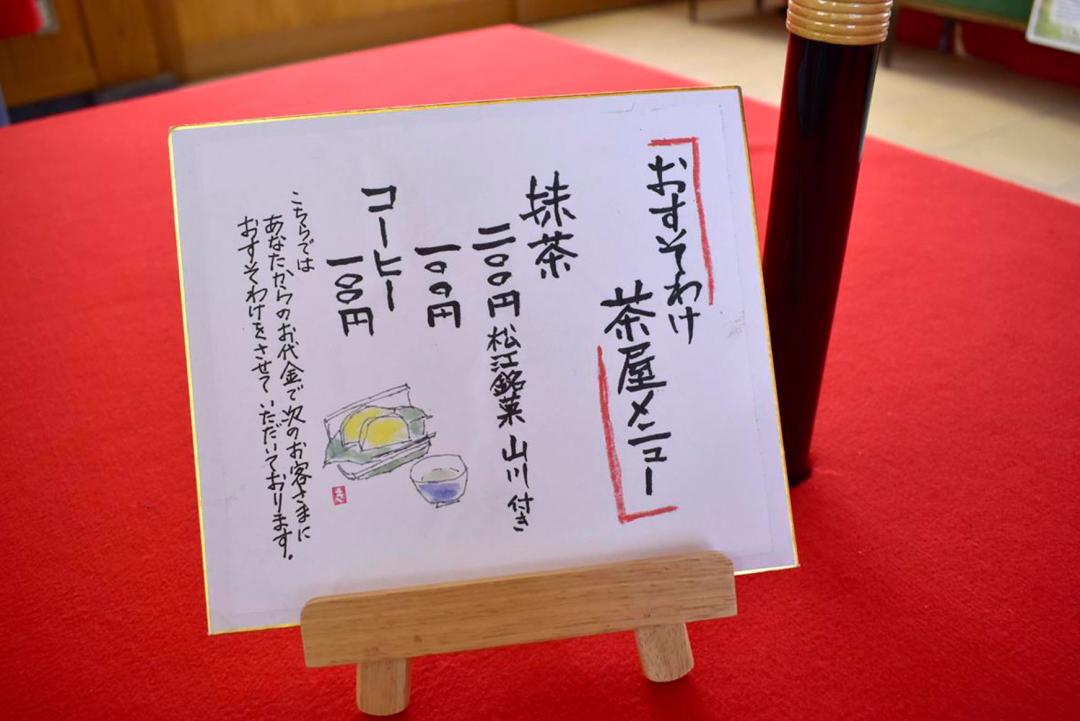 おすそわけ
茶屋メニュー
抹茶
二〇〇円 松江銘菓 山川 付き
一〇〇円
コーヒー
一〇〇円
こちらでは
あなたからのお代金で次のお客さまに
おすそわけをさせていただいております。